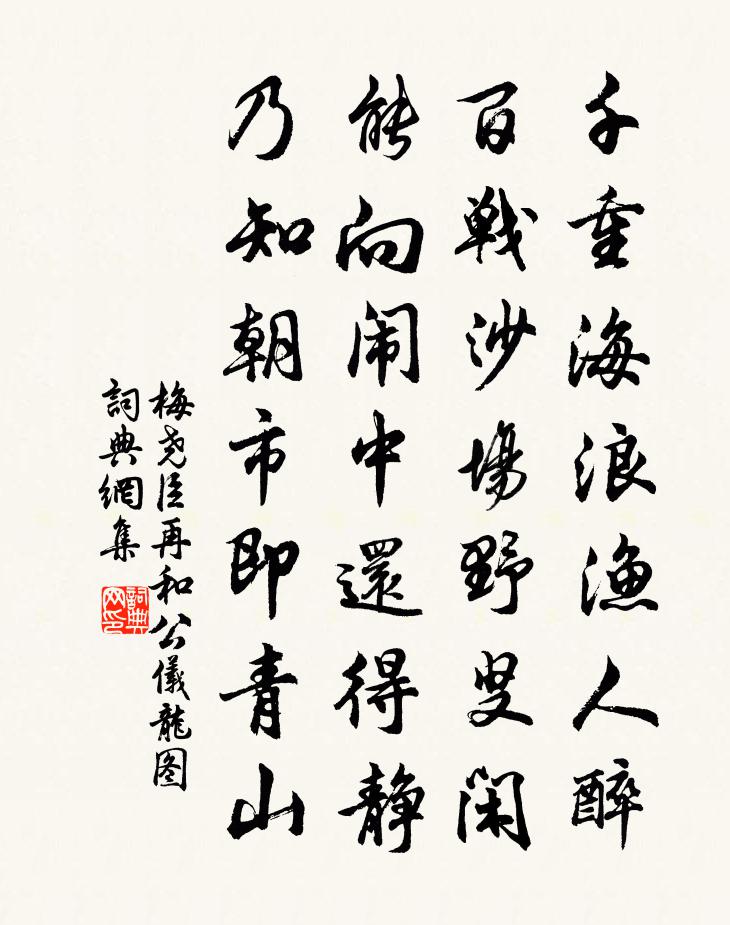 千重海浪渔人醉
百戰沙場野叟闲
能向闹中還得静
乃知朝市即青山
梅尧臣再和公儀龍图
詞典網集
詞典网印